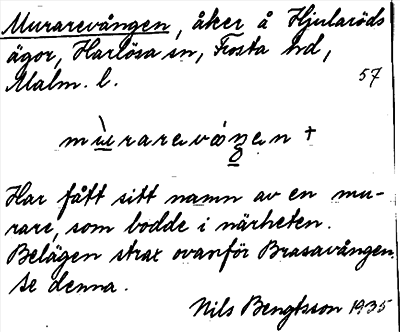 Murarevången, åker å Hjularöds
ägor, Harlösa sn, Frosta hd,
Malm. l. 57
mùrarevåŋen +
Har fått sitt namn av en mu-
rare, som bodde i närheten.
Belägen strax ovanför Brasavången.
se denna.
Nils Bengtsson 1935